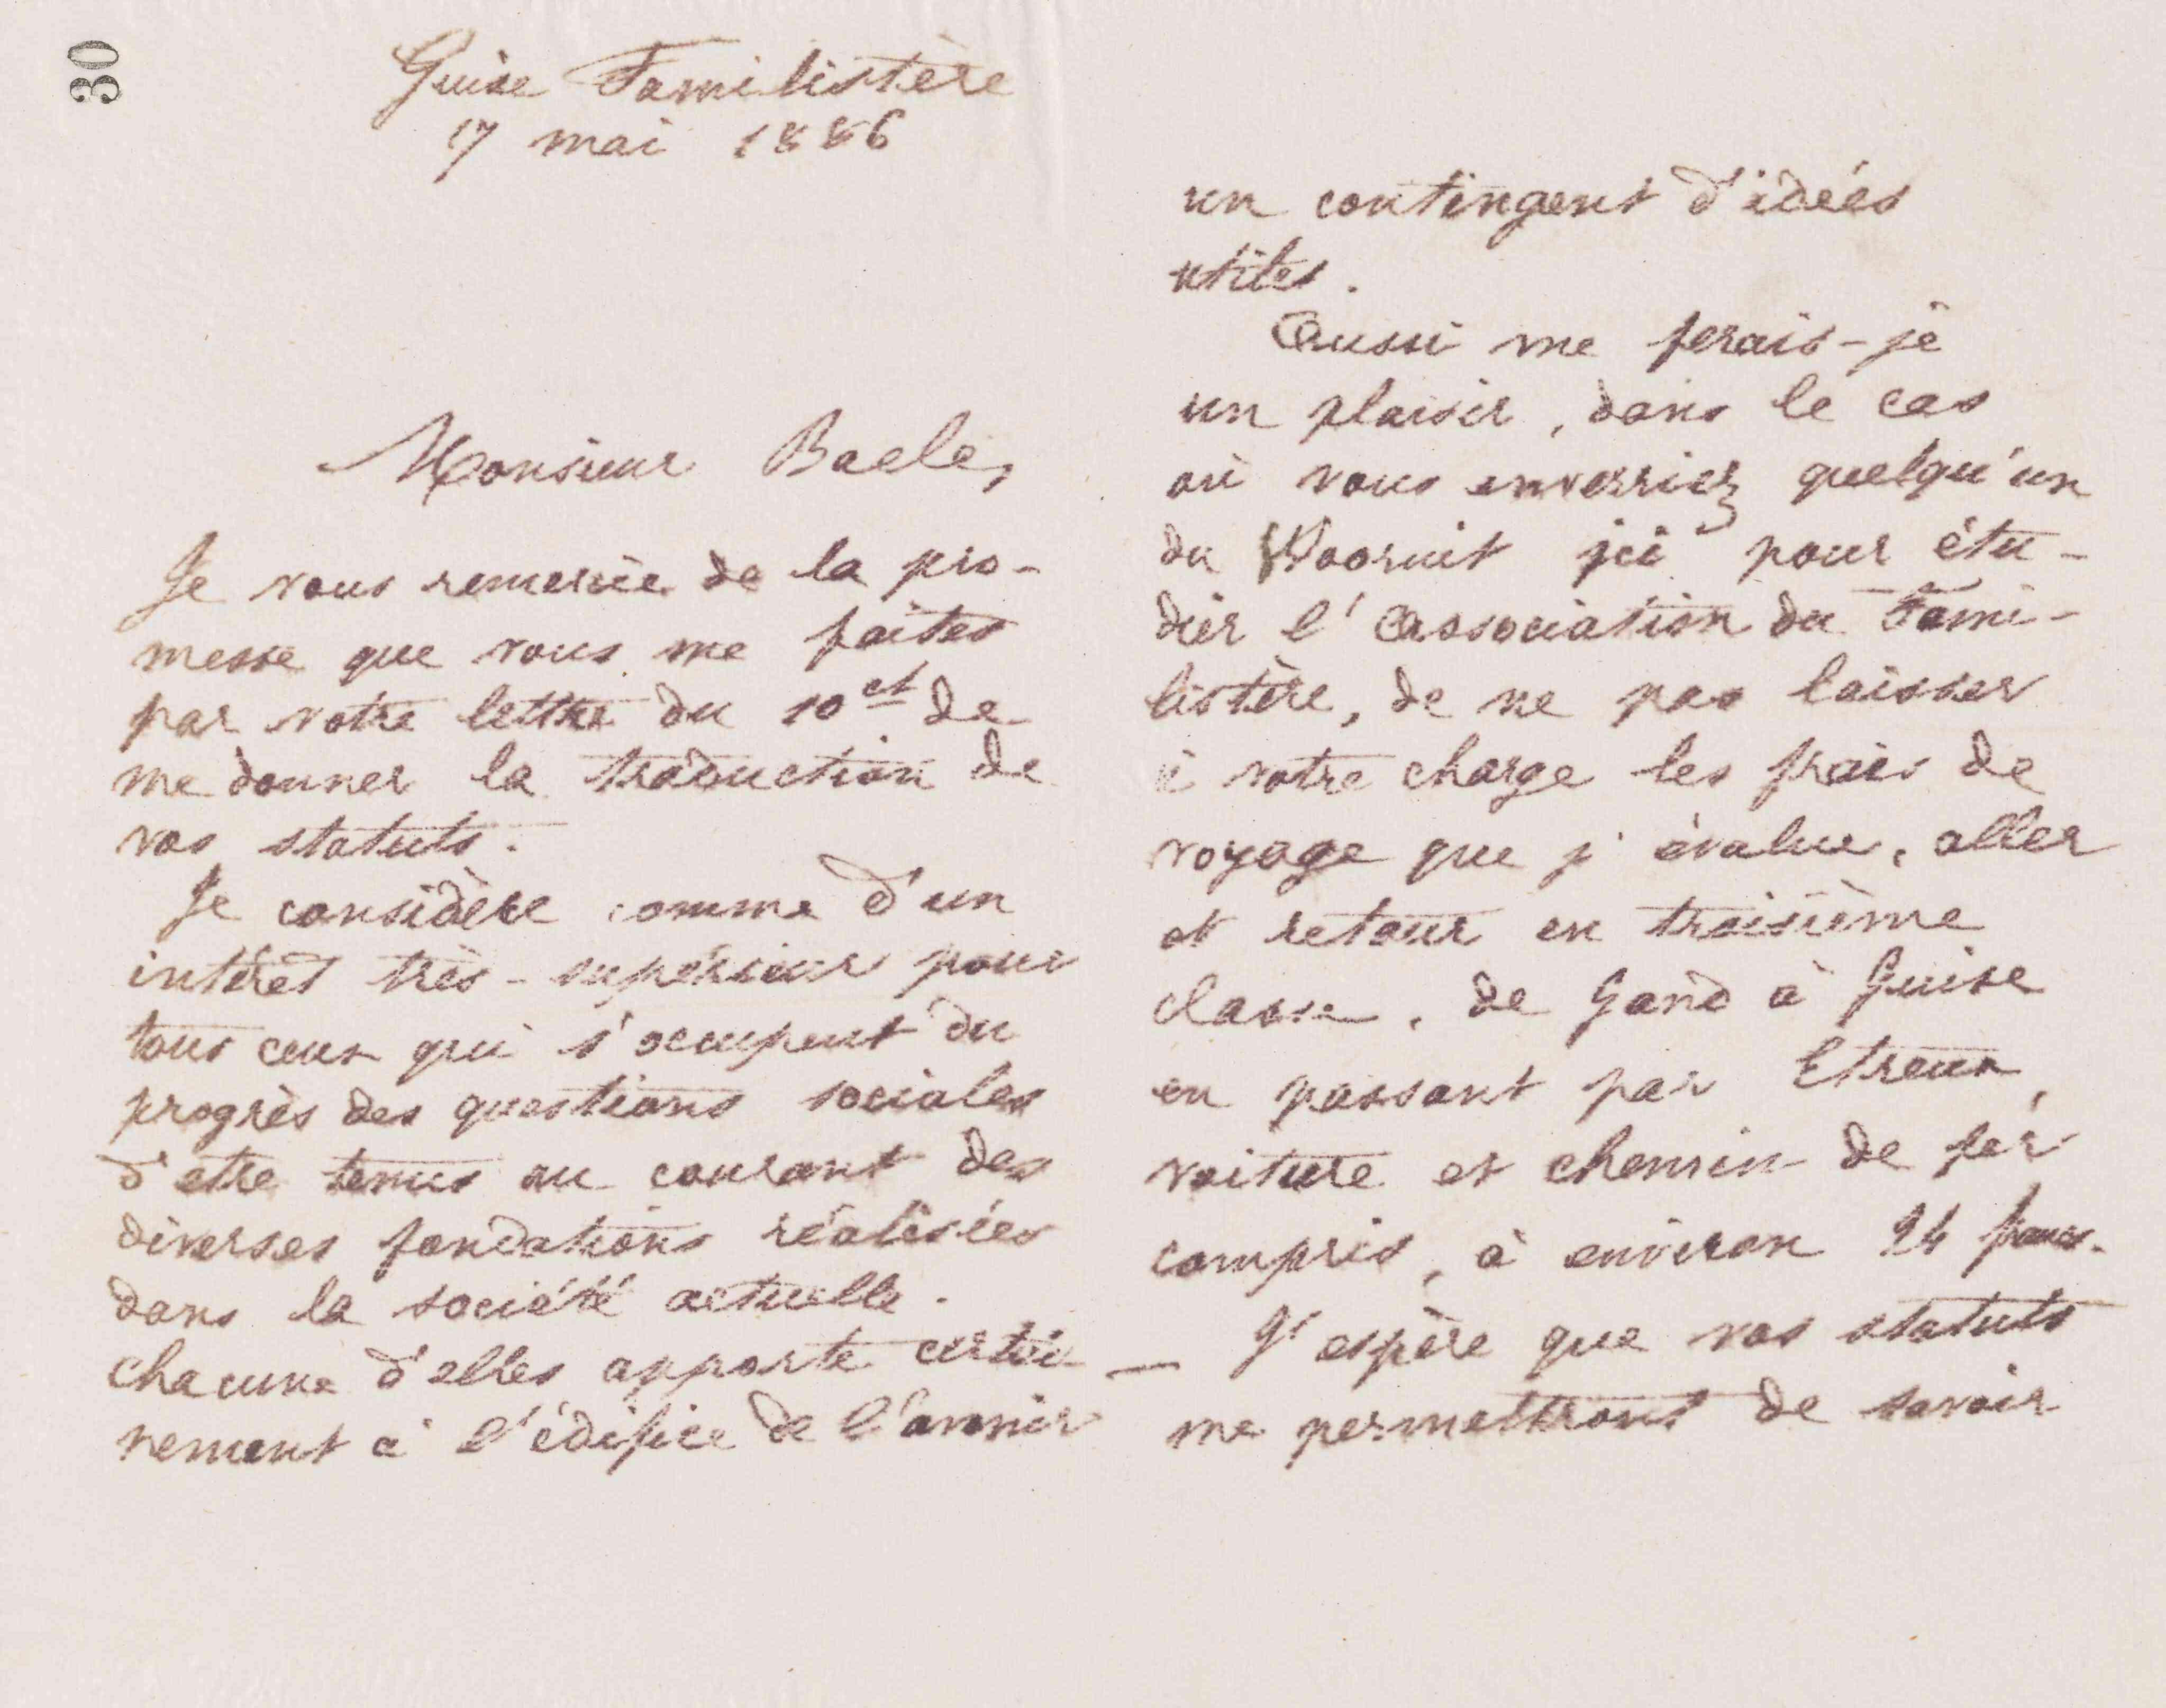 30
Guise Familistère
17 mai 1886
Monsieur Baele,
Je vous remercie de la pro-
messe que vous me faites
par votre lettre du 10 ct de
me donner la traduction de
vos statuts.
Je considère comme d'un
intérêt très-supérieur pour
tous ceux qui s'occupent du
progrès des questions sociales
d'etre tenus au courant des
diverses fondations réalisées
dans la société actuelle.
Chacune d'elles apporte certai-
nement à l'édifice de l'avenir
un contingent d'idées
utiles.
Aussi me ferais-je
un plaisir, dans le cas
où vous enverriez quelqu'un
du Vooruit ici pour étu-
dier l'Association du Fami-
listère, de ne pas laisser
à votre charge les frais de
voyage que j'évalue, aller
et retour en troisième
classe, de Gand à Guise
en passant par Etreux,
voiture et chemin de fer
compris, à environ 24 francs.
J'espère que vos statuts
me permettront de savoir